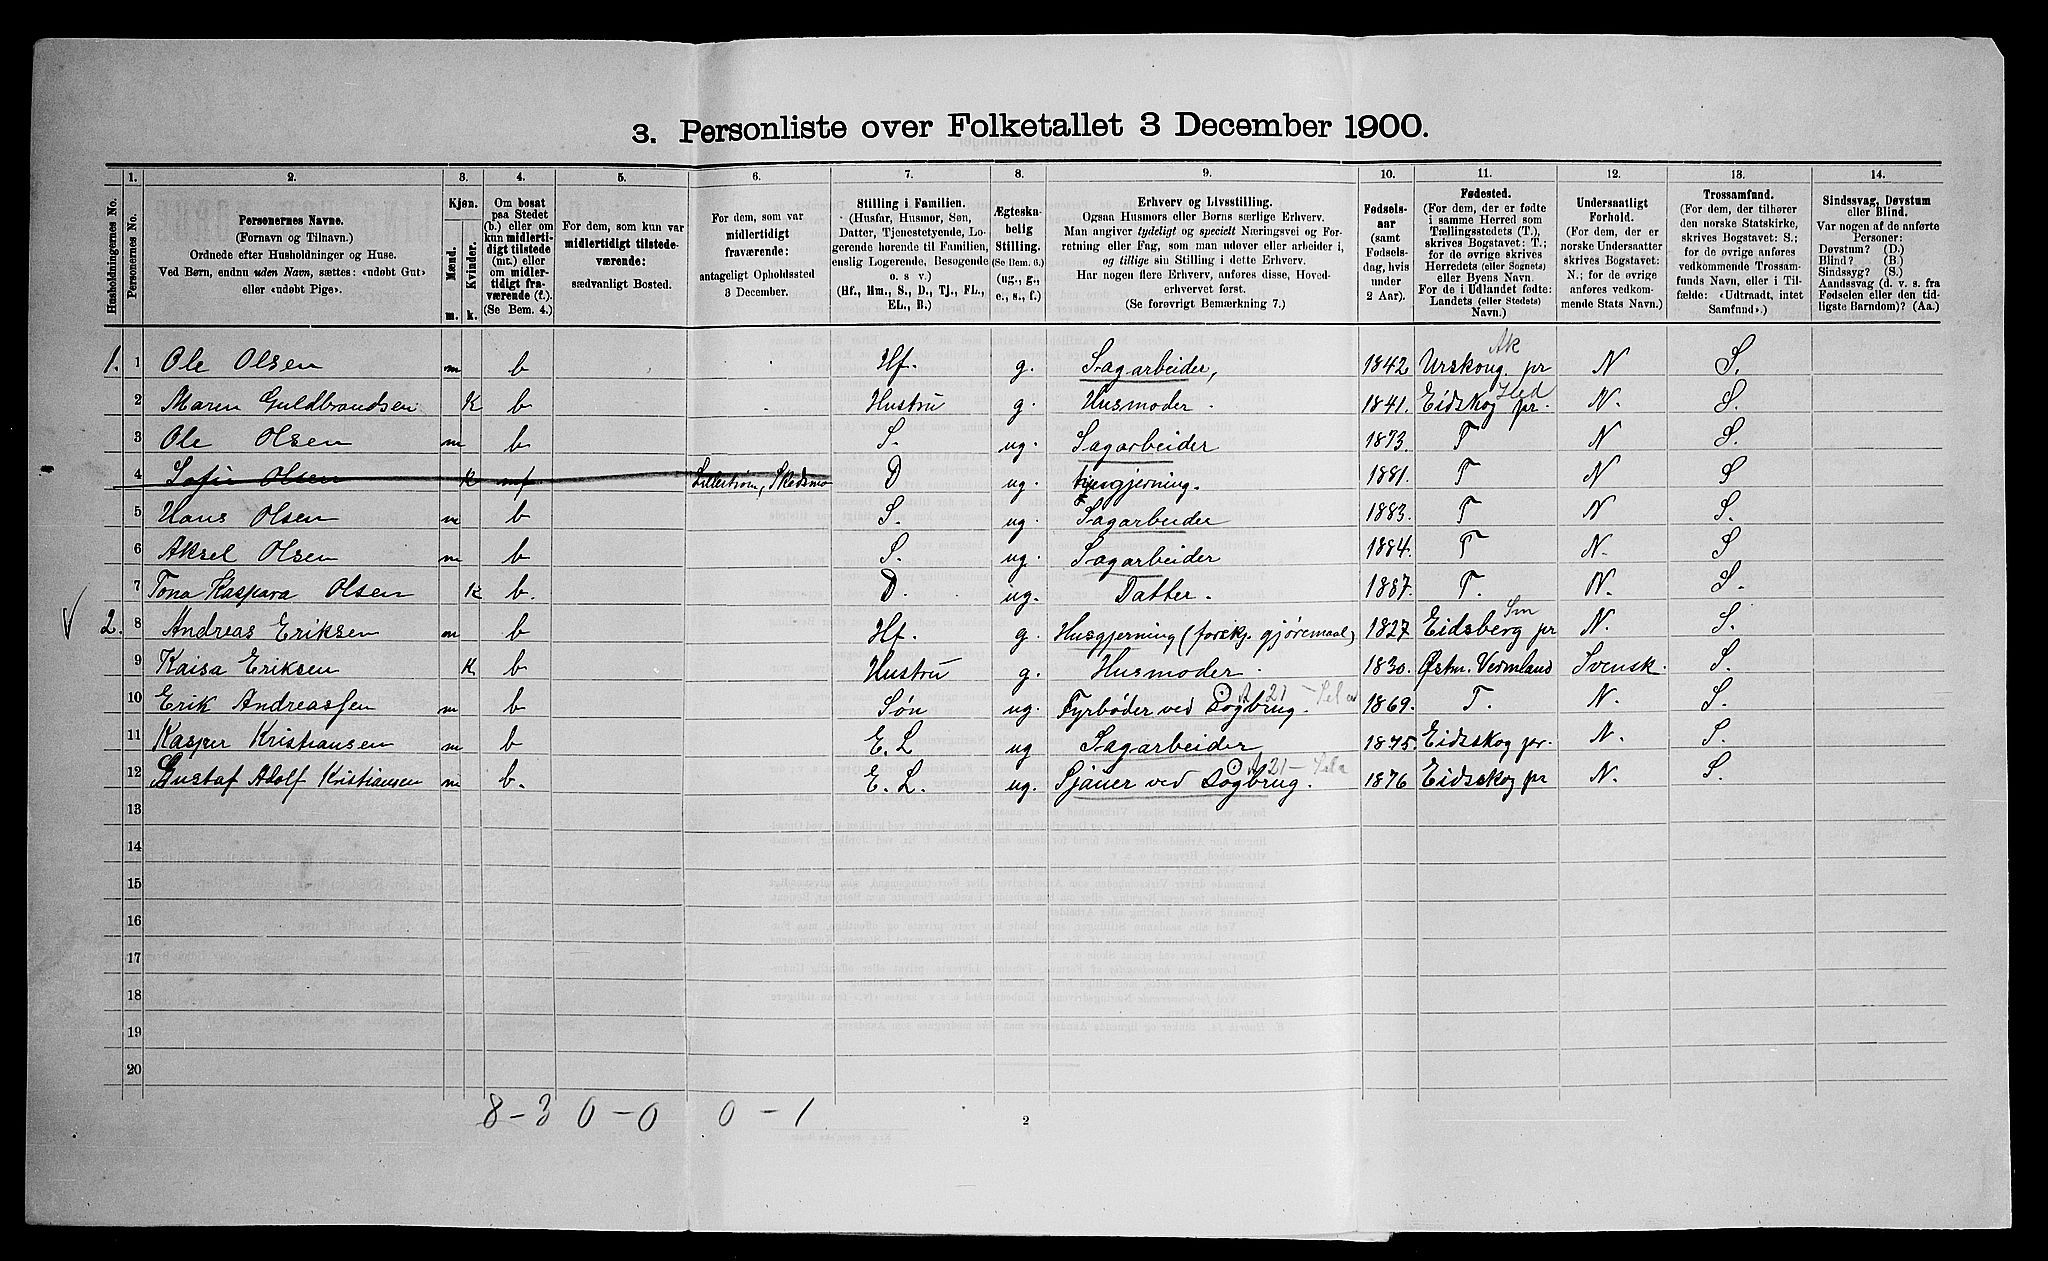 3. Personliste over Folketallet 3 December 1900.
1. 2. 3. 4. 5. 6. 7. 8. 9. 10. 11. 12. 13. 14.
Husholdningernes No.
Personernes No.
Personernes Navne.
(Fornavn og Tilnavn.)
Ordnede efter Husholdninger og Huse.
Ved Børn, endnu uden Navn, sættes: «udøbt Gut»
eller «udøbt Pige».
Kjøn.
Mænd.
Kvinder.
m. k.
Om bosat
paa Stedet
(b.) eller om
kun midlerti-
digt tilstede
(mt.) eller
om midler-
tidigt fra-
værende (f.).
(Se Bem. 4.)
For dem, som kun var
midlertidigt tilstede-
værende:
sædvanligt Bosted.
For dem, som var
midlertidigt
fraværende:
antageligt Opholdssted
3 December.
Stilling i Familien.
(Husfar, Husmor, Søn,
Datter, Tjenestetyende, Lo-
gerende hørende til Familien,
enslig Logerende, Besøgende
o. s. v.)
(Hf., Hm., S., D., Tj., FL.,
EL., B.)
Ægteska-
belig
Stilling.
(Se Bem. 6.)
(ug., g.,
e., s., f.)
Erhverv og Livsstilling.
Ogsaa Husmors eller Børns særlige Erhverv.
Man angiver tydeligt og specielt Næringsvei og For-
retning eller Fag, som man udøver eller arbeider i,
og tillige sin Stilling i dette Erhverv.
Har nogen flere Erhverv, anføres disse, Hoved-
erhvervet først.
(Se forøvrigt Bemærkning 7.)
Fødsels-
aar
(samt
Fødsels-
dag, hvis
under
2 Aar).
Fødested.
(For dem, der er fødte
i samme Herred som
Tællingsstedets (T.),
skrives Bogstavet: T.;
for de øvrige skrives
Herredets (eller Sognets)
eller Byens Navn.
For de i Udlandet fødte:
Landets (eller Stedets)
Navn.)
Undersaatligt
Forhold.
(For dem, der er
norske Undersaatter
skrives Bogstavet:
N.; for de øvrige
anføres vedkom-
mende Stats Navn.)
Trossamfund.
(For dem, der tilhører
den norske Statskirke,
skrives Bogstavet: S.;
for de øvrige anføres
vedkommende Trossam-
funds Navn, eller i Til-
fælde: «Udtraadt, intet
Samfund».)
Sindssvag, Døvstum
eller Blind.
Var nogen af de anførte
Personer:
Døvstum? (D.)
Blind? (B.)
Sindssyg? (S.)
Aandssvag (d. v. s. fra
Fødselen eller den tid-
ligste Barndom)? (Aa.)
Ak
1. 1 Ole Olsen m b Hf. g. Sagarbeider, 1842 Urskoug. pr N S.
Hed
2 Maren Guldbrandsen K b Hustru g. Husmoder. 1841. Eidskog pr. N. S.
3 Ole Olsen m b S. ug. Sagarbeider 1873. T N S.
4 Sofie Olsen K mf Lillestrøm, Skedsmo D ug. Husgjerning. 1881. T N S
5 Hans Olsen m b S. ug. Sagarbeider 1883. T N S.
6 Aksel Olsen m b S. ug. Sagarbeider 1884. T N. S
7 Tona Kaspara Olsen K b. D. ug. Datter. 1887. T. N. S.
Sm
V 2. 8 Andreas Eriksen m b Hf. g. Husgjerning (forskj. gjøremaal) 1827 Eidsberg pr N. S.
9 Kaisa Eriksen K b Hustru g. Husmoder. 1830. Østm. Vermland Svensk. S.
10 Erik Andreassen m b Søn ug. Fyrbøder ved Sagbrug. 1869. T. N. S.
11 Kasper Kristiansen m b E. L ug Sagarbeider 1875. Eidskog pr. N. S.
12 Gustaf Adolf Kristiansen m b. E. L. ug. Sjauer ved Sagbrug. 1876 Eidskog pr N. S.
13
14
15
16
17
18
19
20
8-3 0-0 0-1
2